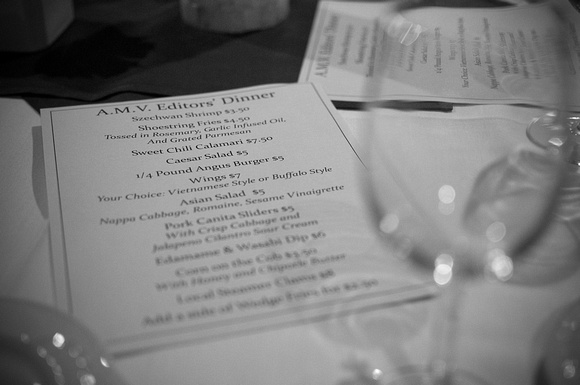 A.M.V. Editors' Dinner
Szechwan Shrimp $3.50
Shoestring Fries $4.50
Tossed in Rosemary, Garlic Infused Oil,
And Grated Parmesan
Sweet Chili Calamari $7.50
Caesar Salad $5
1/4 Pound Angus Burger $5
Wings $7
Your Choice: Vietnamese Style or Buffalo Style
Asian Salad $5
Nappa Cabbage, Romaine, Sesame Vinaigrette
Pork Canita Sliders $5
With Crisp Cabbage and
Jalapeno Cilantro Sour Cream
Edamame & Wasabi Dip $6
Corn on the Cob $3.50
With Honey and Chipotle Butter
Local Steamer Clams $8
Add a side of Wedge Fries for $2.50
A.M.V. Editors'